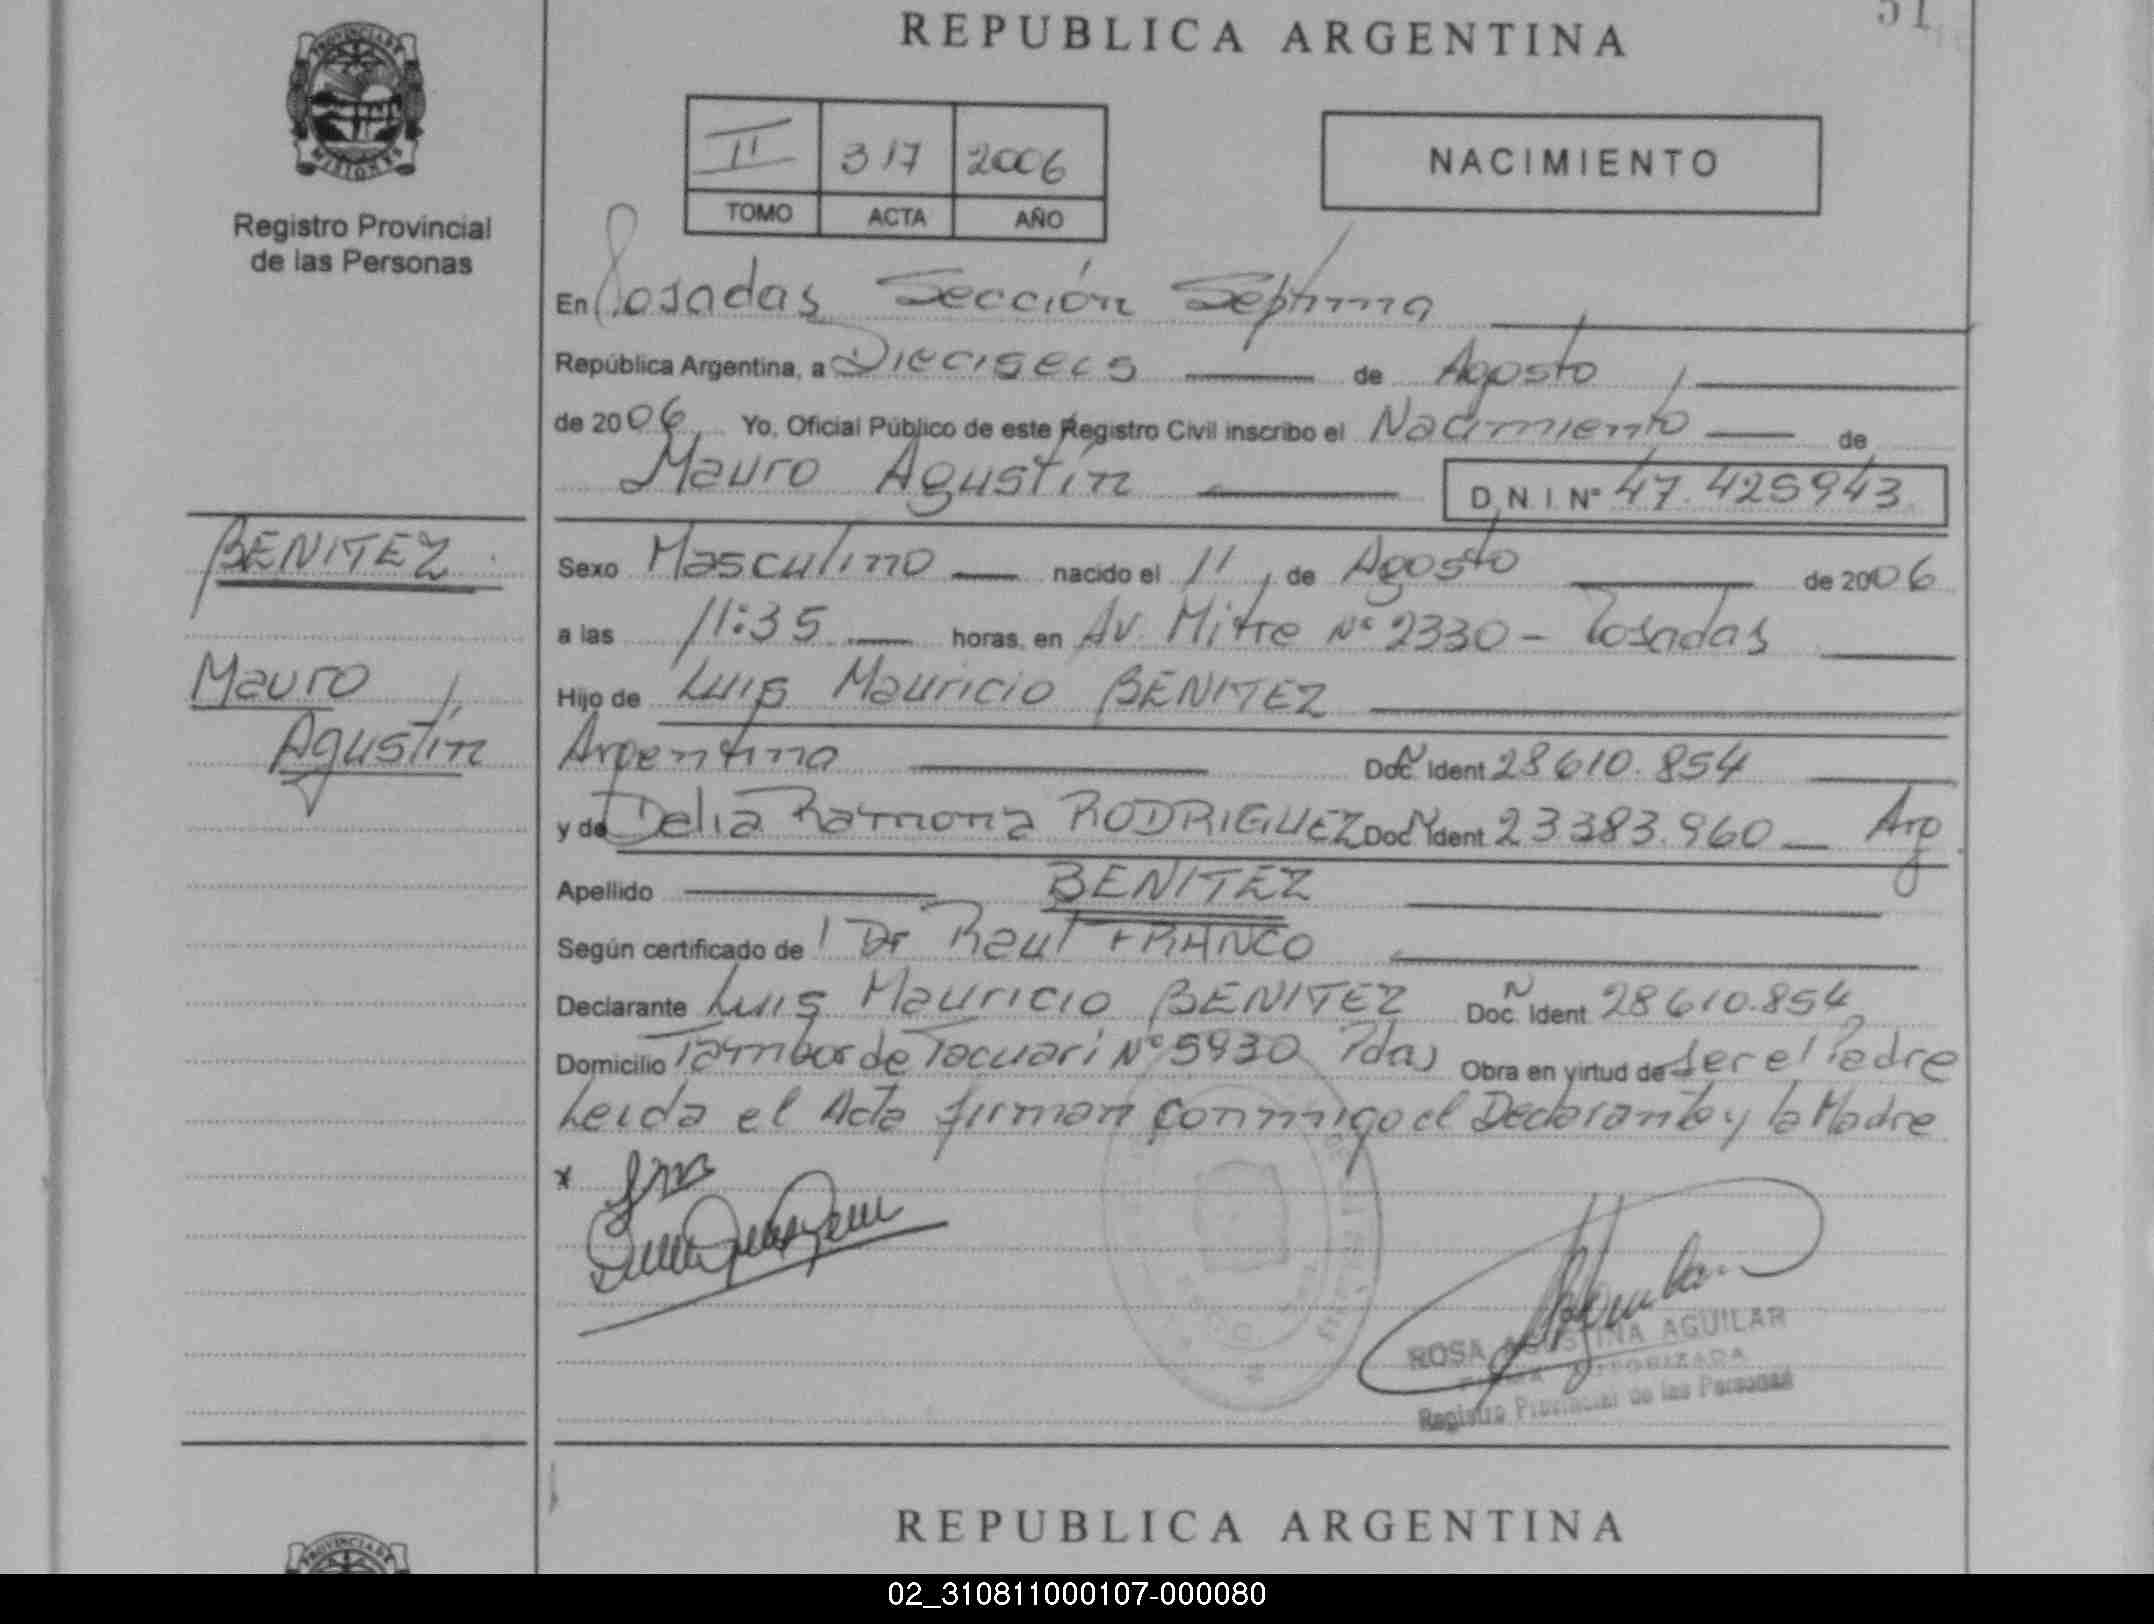 REPUBLICA ARGENTINA
51
PROVINCIA DE
MISIONES
Registro Provincial
de las Personas
II 317 2006
TOMO ACTA AÑO
NACIMIENTO
En Posadas Sección Séptima
República Argentina, a Dieciseis de Agosto
de 2006 Yo, Oficial Público de este Registro Civil inscribo el Nacimiento de
Mauro Agustín D.N.I. Nº 47.425943
BENITEZ
Mauro
Agustín
Sexo Masculino nacido el 11 de Agosto de 2006
a las 11:35 horas, en Av. Mitre Nº 2330 - Posadas
Hijo de Luis Mauricio BENITEZ
Argentina Doc. Ident 28610.854
y de Delia Ramona RODRIGUEZ Doc Ident 23383.960 Arg.
Apellido BENITEZ
Según certificado de Dr Raul FRANCO
Declarante Luis Mauricio BENITEZ Doc. Ident 28610.854
Domicilio Tambor de Tacuari Nº 5930 Pdas Obra en virtud de ser el Padre
Leida el Acta firman conmigo el Declarante y la Madre
ROSA AGUSTINA AGUILAR
FIRMA AUTORIZADA
Registro Provincial de las Personas
REPUBLICA ARGENTINA
PROVINCIA DE
02_310811000107-000080